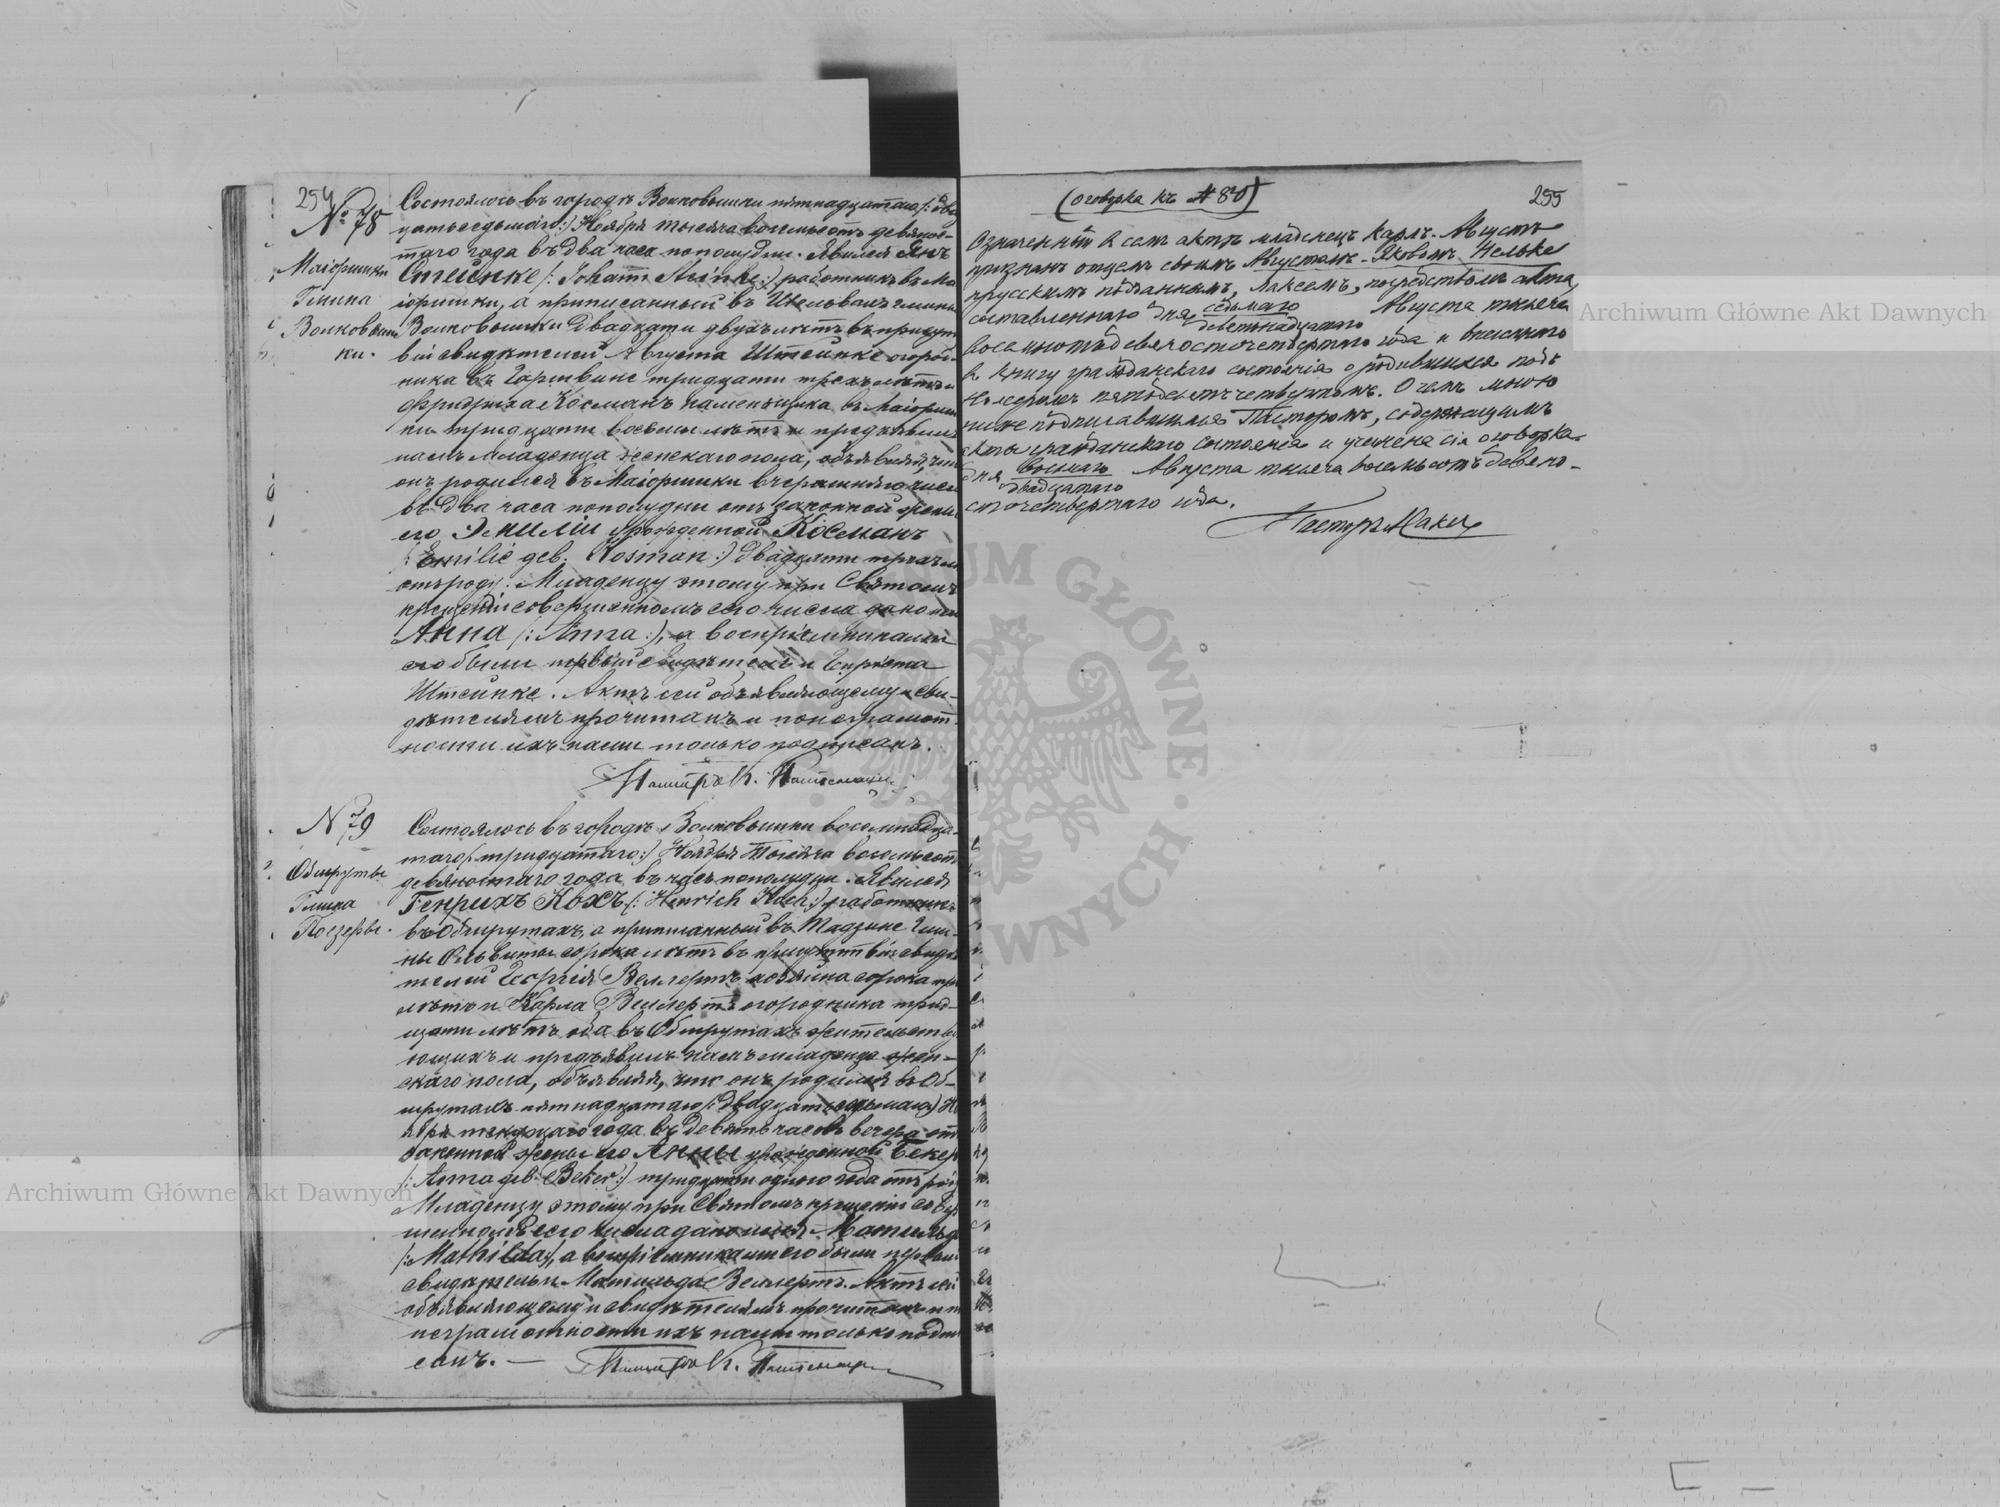 254
№ 78
Маіоришки
Гмина
Волковышки.
Состоялось въ городѣ Волковышки пятнадцатаго /: два
цать седьмого :/ Ноября тысяча восемьсотъ девянос-
таго года въ два часа пополудни. Явился Янъ
/: Johann :/ работникъ въ Ма
іоришки, а приписанный въ гмины
Волковышки двадцати двухъ лѣтъ въ присут
віи свидѣтелей Августа Штейнке огород-
ника въ тридцати трехъ лѣтъ и
Фридриха Косманъ каменьщика въ Маіориш
ки тридцати восьми лѣтъ и предъявилъ
намъ младенца женскаго пола, объявляя, что
онъ родился въ Маіоришки вчерашняго числа
въ два часа пополудни отъ законной жены
его Эмиліи урожденной Косманъ
/: Emilie geb. Kosman :/ двадцати трехъ лѣ
отъ роду. Младенцу этому при Святомъ
крещеніи совершенномъ сего числа дано имя
Анна /: Anna :/, а воспріемниками
его были первый свидѣтель и
Штейнке. Актъ сей объявляющему и сви-
дѣтелямъ прочитанъ и по неграмот-
ности ихъ нами только подписанъ.
Пасторъ К.
№ 79
Обшруты
Гмина
Поезеры.
Состоялось въ городѣ Волковышки восемнадца-
таго /: тридцатаго :/ Ноября тысяча восемьсотъ
девяностаго года въ часъ пополудни. Явился
Генрихъ Кохъ /: Heinrich Koch :/ работникъ
въ Обшрутахъ, а приписанный въ гми-
ны сорока лѣтъ въ присутствіи свидѣ
телей Георгія Веллертъ хозяина сорока
лѣтъ и Карла Веллертъ огородника трид-
цати лѣтъ оба въ Обшрутахъ жительству
ющихъ и предъявилъ намъ младенца жен-
скаго пола, объявляя, что онъ родился въ Об-
шрутахъ пятнадцатаго /: двадцать седьмаго :/ Но
ября текущаго года въ девять часовъ вечера отъ
законной жены его Анны урожденной Бекеръ
/: Anna geb. Beker :/ тридцати одного года отъ роду
Младенцу этому при Святомъ крещеніи совер
шенномъ сего числа дано имя Матильда
/: Mathilda :/, а воспріемниками его были первый
свидѣтель и Матильда Веллертъ. Актъ сей
объявляющему и свидѣтелямъ прочитанъ и по
неграмотности ихъ нами только подпи
санъ. —
Пасторъ К.
(оговорка къ № 80)
255
Означенный въ семъ актѣ младенецъ Карлъ-Августъ
признанъ отцемъ своимъ Августомъ-Яковомъ Нельке
прусскимъ подданнымъ, посредствомъ акта,
составленнаго дня седьмаго Августа тысяча
девятнадцатаго
восемьсотъ девяносто четвертаго года и внесеннаго
въ книгу гражданскаго состоянія о родившихся подъ
номеромъ пятьдесятъ четвертымъ. О чемъ мною
нижеподписавшимся Пасторомъ, содержащимъ
акты гражданскаго состоянія и учинена сія оговорка.
дня восьмаго Августа тысяча восемьсотъ девяно-
двадцатаго
сто четвертаго года.
Пасторъ
Archiwum Główne Akt Dawnych
Archiwum Główne Akt Dawnych